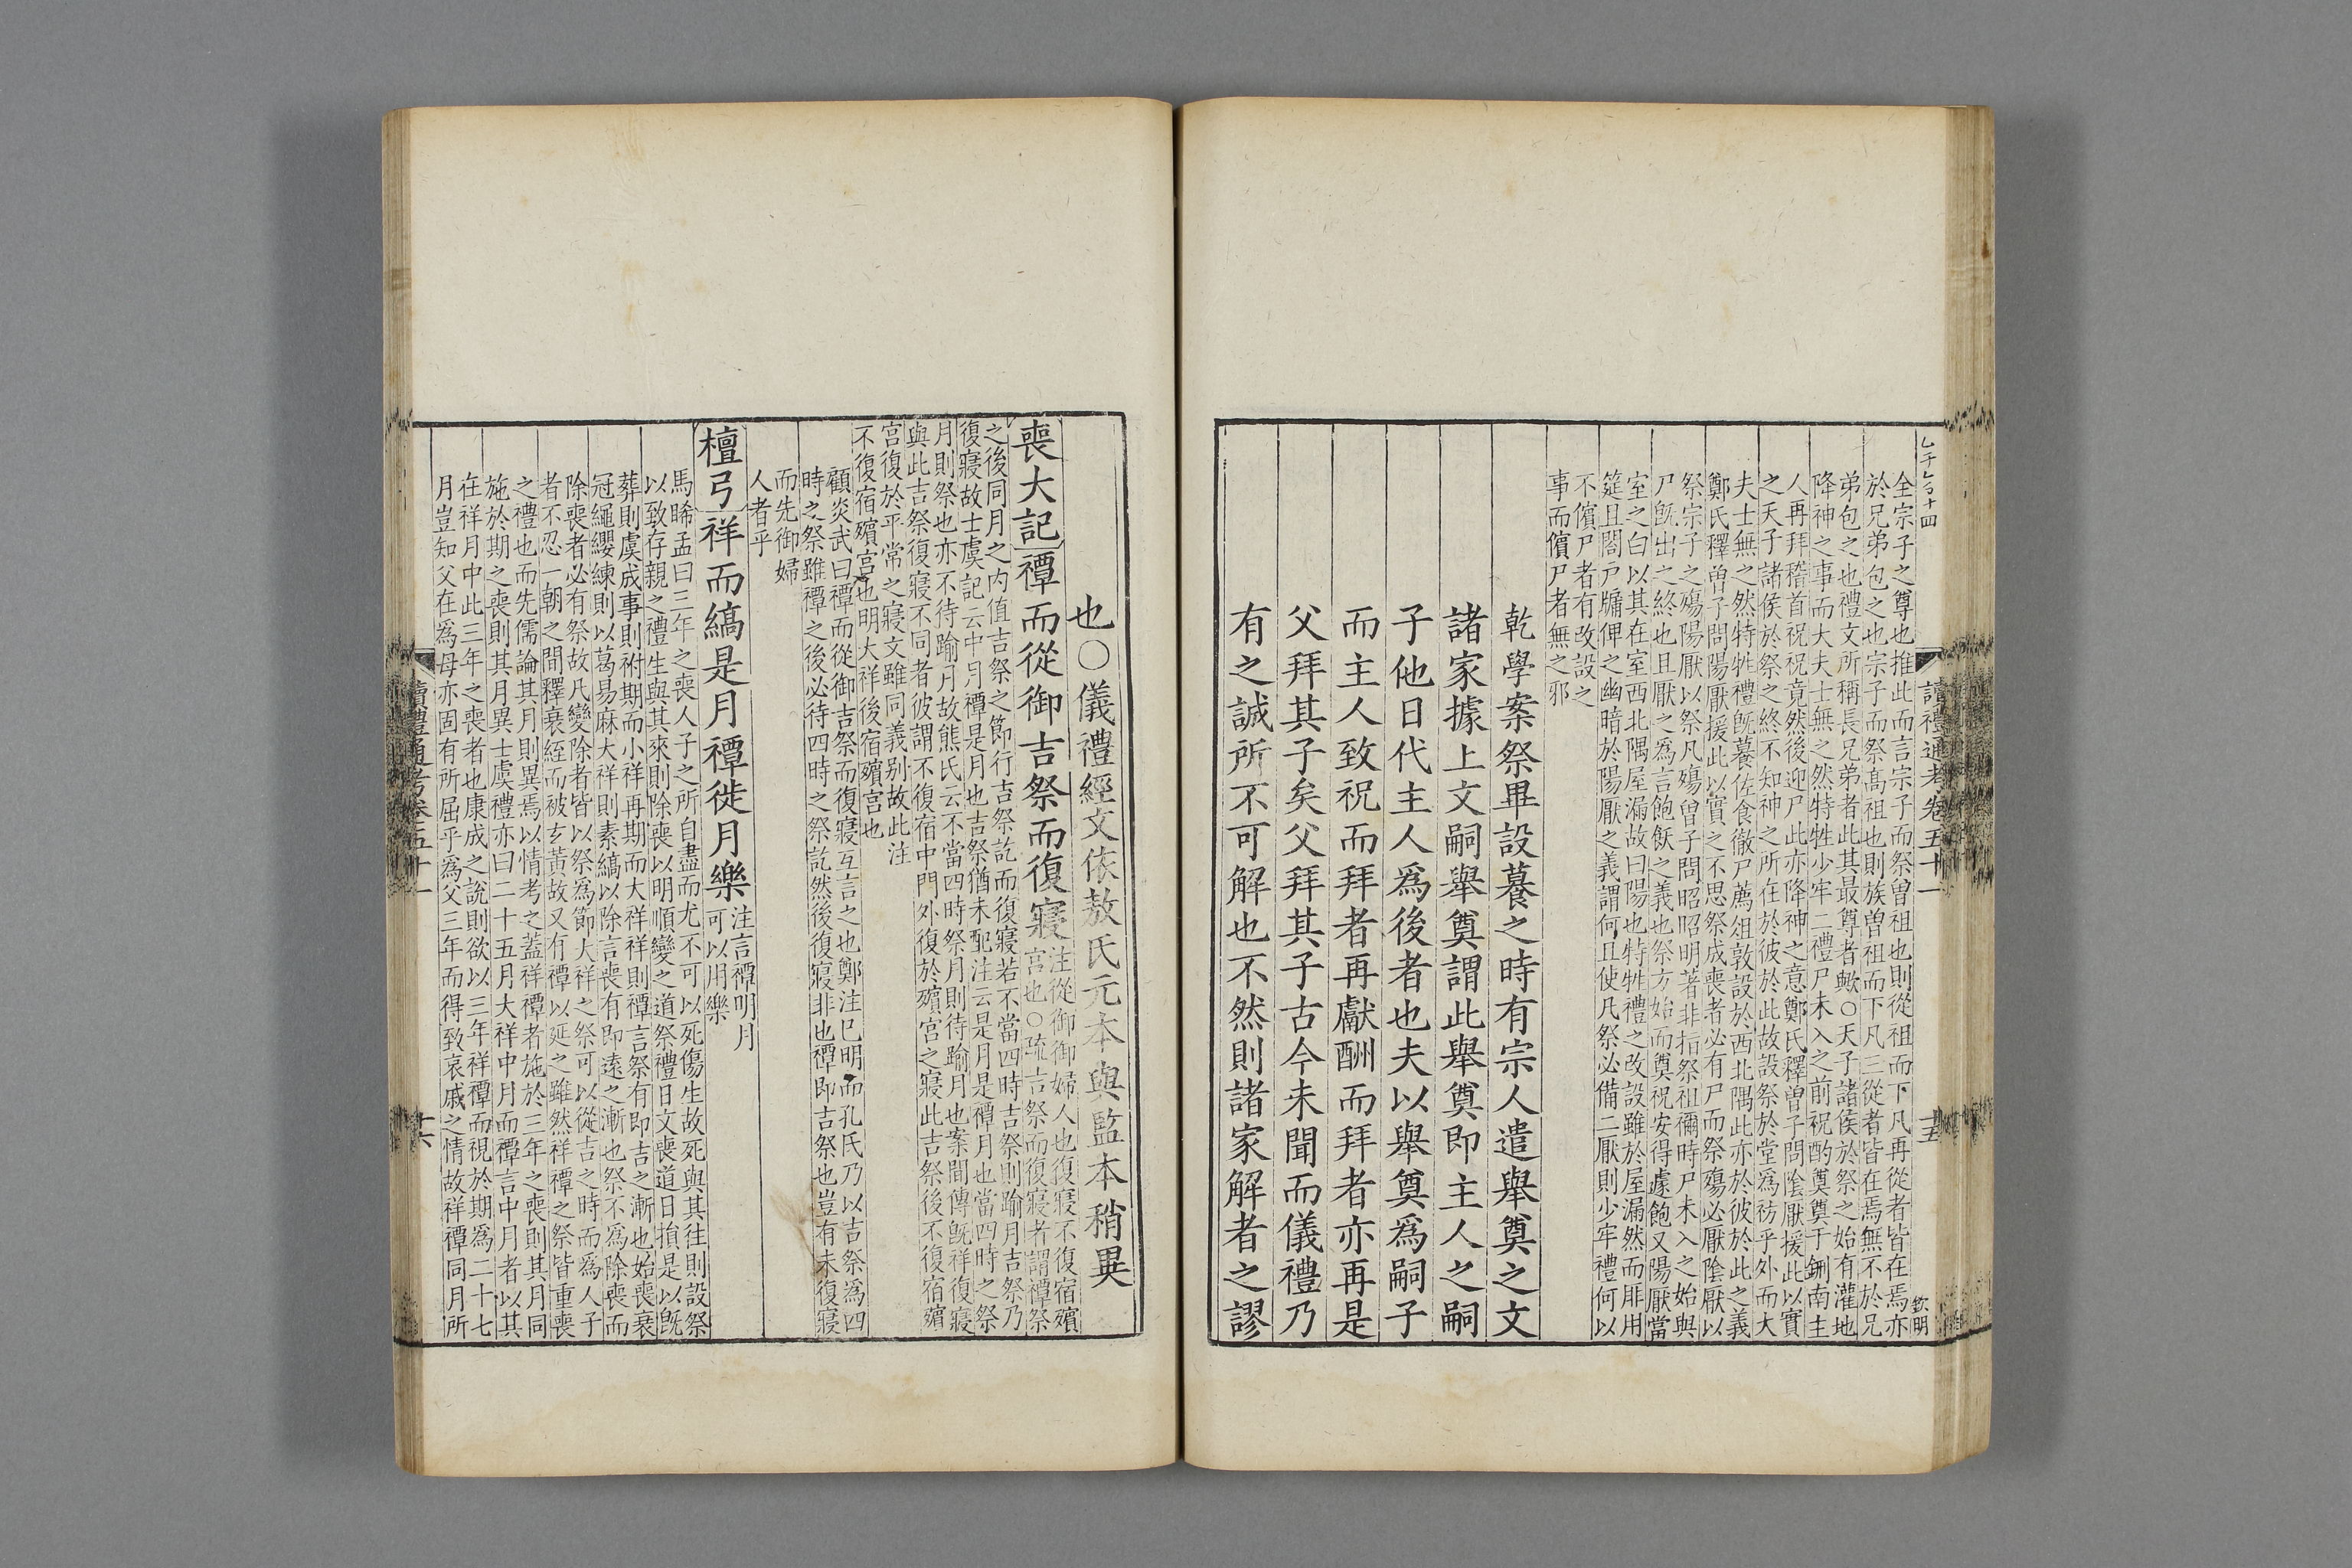 全宗子之尊也推此而言宗子而祭曾祖也則從祖而下凡再從者皆在焉亦
於兄弟包之也宗子而祭髙祖也則族曾祖而下凡三從者皆在焉無不於兄
弟包之也禮文所稱長兄弟者此其最尊者歟○天子諸侯於祭之始有灌地
降神之事而大夫士無之然特牲少牢二禮尸未入之前祝酌奠奠于鉶南主
人再拜稽首祝祝竟然後迎尸此亦降神之意鄭氏釋曽子問陰厭援此以實
之天子諸侯於祭之終不知神之所在於彼於此故設祭於堂爲祊乎外而大
夫士無之然特牲禮旣餕佐食徹尸薦俎敦設於西北隅此亦於彼於此之義
鄭氏釋曽子問陽厭援此以實之不思祭成喪者必有尸而祭殤必厭隂厭以
祭宗子之殤陽厭以祭凡殤曽子問昭昭明著非指祭祖禰時尸未入之始與
尸旣出之終也且厭之為言飽飫之義也祭方始而奠祝安得遽飽又陽厭當
室之白以其在室西北隅屋漏故曰陽也特牲禮之改設雖於屋漏然而厞用
筵且閤戸牖俾之幽暗於陽厭之義謂何且使凡祭必備二厭則少牢禮何以
不儐尸者有改設之
事而儐尸者無之邪
乾學案祭畢設䬸之時有宗人遣舉奠之文
諸家據上文嗣舉奠謂此舉奠即主人之嗣
子他日代主人爲後者也夫以舉奠爲嗣子
而主人致祝而拜者再獻酬而拜者亦再是
父拜其子矣父拜其子古今未聞而儀禮乃
有之誠所不可解也不然則諸家解者之謬
讀禮通考卷五十一
十五
欽明
也○儀禮經文依敖氏元本與監本稍異
喪大記禫而從御吉祭而復寢
注從御御婦人也復寢不復宿殯
宫也○疏吉祭而復寢者謂禫祭
之後同月之内值吉祭之節行吉祭訖而復寢若不當四時吉祭則踰月吉祭乃
復寢故士虞記云中月禫是月也吉祭猶未配注云是月是禫月也當四時之祭
月則祭也亦不待踰月故熊氏云不當四時祭月則待踰月也案間傳旣祥復寢
與此吉祭復寢不同者彼謂不復宿中門外復於殯宫之寢此吉祭後不復宿殯
宫復於平常之寢文雖同義别故此注
不復宿殯宫也明大祥後宿殯宫也
顧炎武曰禫而從御吉祭而復寢互言之也鄭注已明而孔氏乃以吉祭爲四
時之祭雖禫之後必待四時之祭訖然後復寢非也禫即吉祭也豈有未復寢
而先御婦
人者乎
檀弓祥而縞是月禫徙月樂
注言禫明月
可以用樂
馬晞孟曰三年之喪人子之所自盡而尤不可以死傷生故死與其往則設祭
以致存親之禮生與其來則除喪以明順變之道祭禮日文喪道日損是以旣
葬則虞成事則祔期而小祥再期而大祥祥則禫言祭有即吉之漸也始喪衰
冠繩纓練則以葛易麻大祥則素縞以除言喪有即遠之漸也祭不爲除喪而
除喪者必有祭故凡變除者皆以祭爲節大祥之祭可以從吉之時而爲人子
者不忍一朝之間釋衰絰而被玄黃故又有禫以延之雖然祥禫之祭皆重喪
之禮也而先儒論其月則異焉以情考之蓋祥禫者施於三年之喪則其月同
施於期之喪則其月異士虞禮亦曰二十五月大祥中月而禫言中月者以其
在祥月中此三年之喪者也康成之說則欲以三年祥禫而視於期爲二十七
月豈知父在爲母亦固有所屈乎爲父三年而得致哀戚之情故祥禫同月所
讀禮通考卷五十一
十六